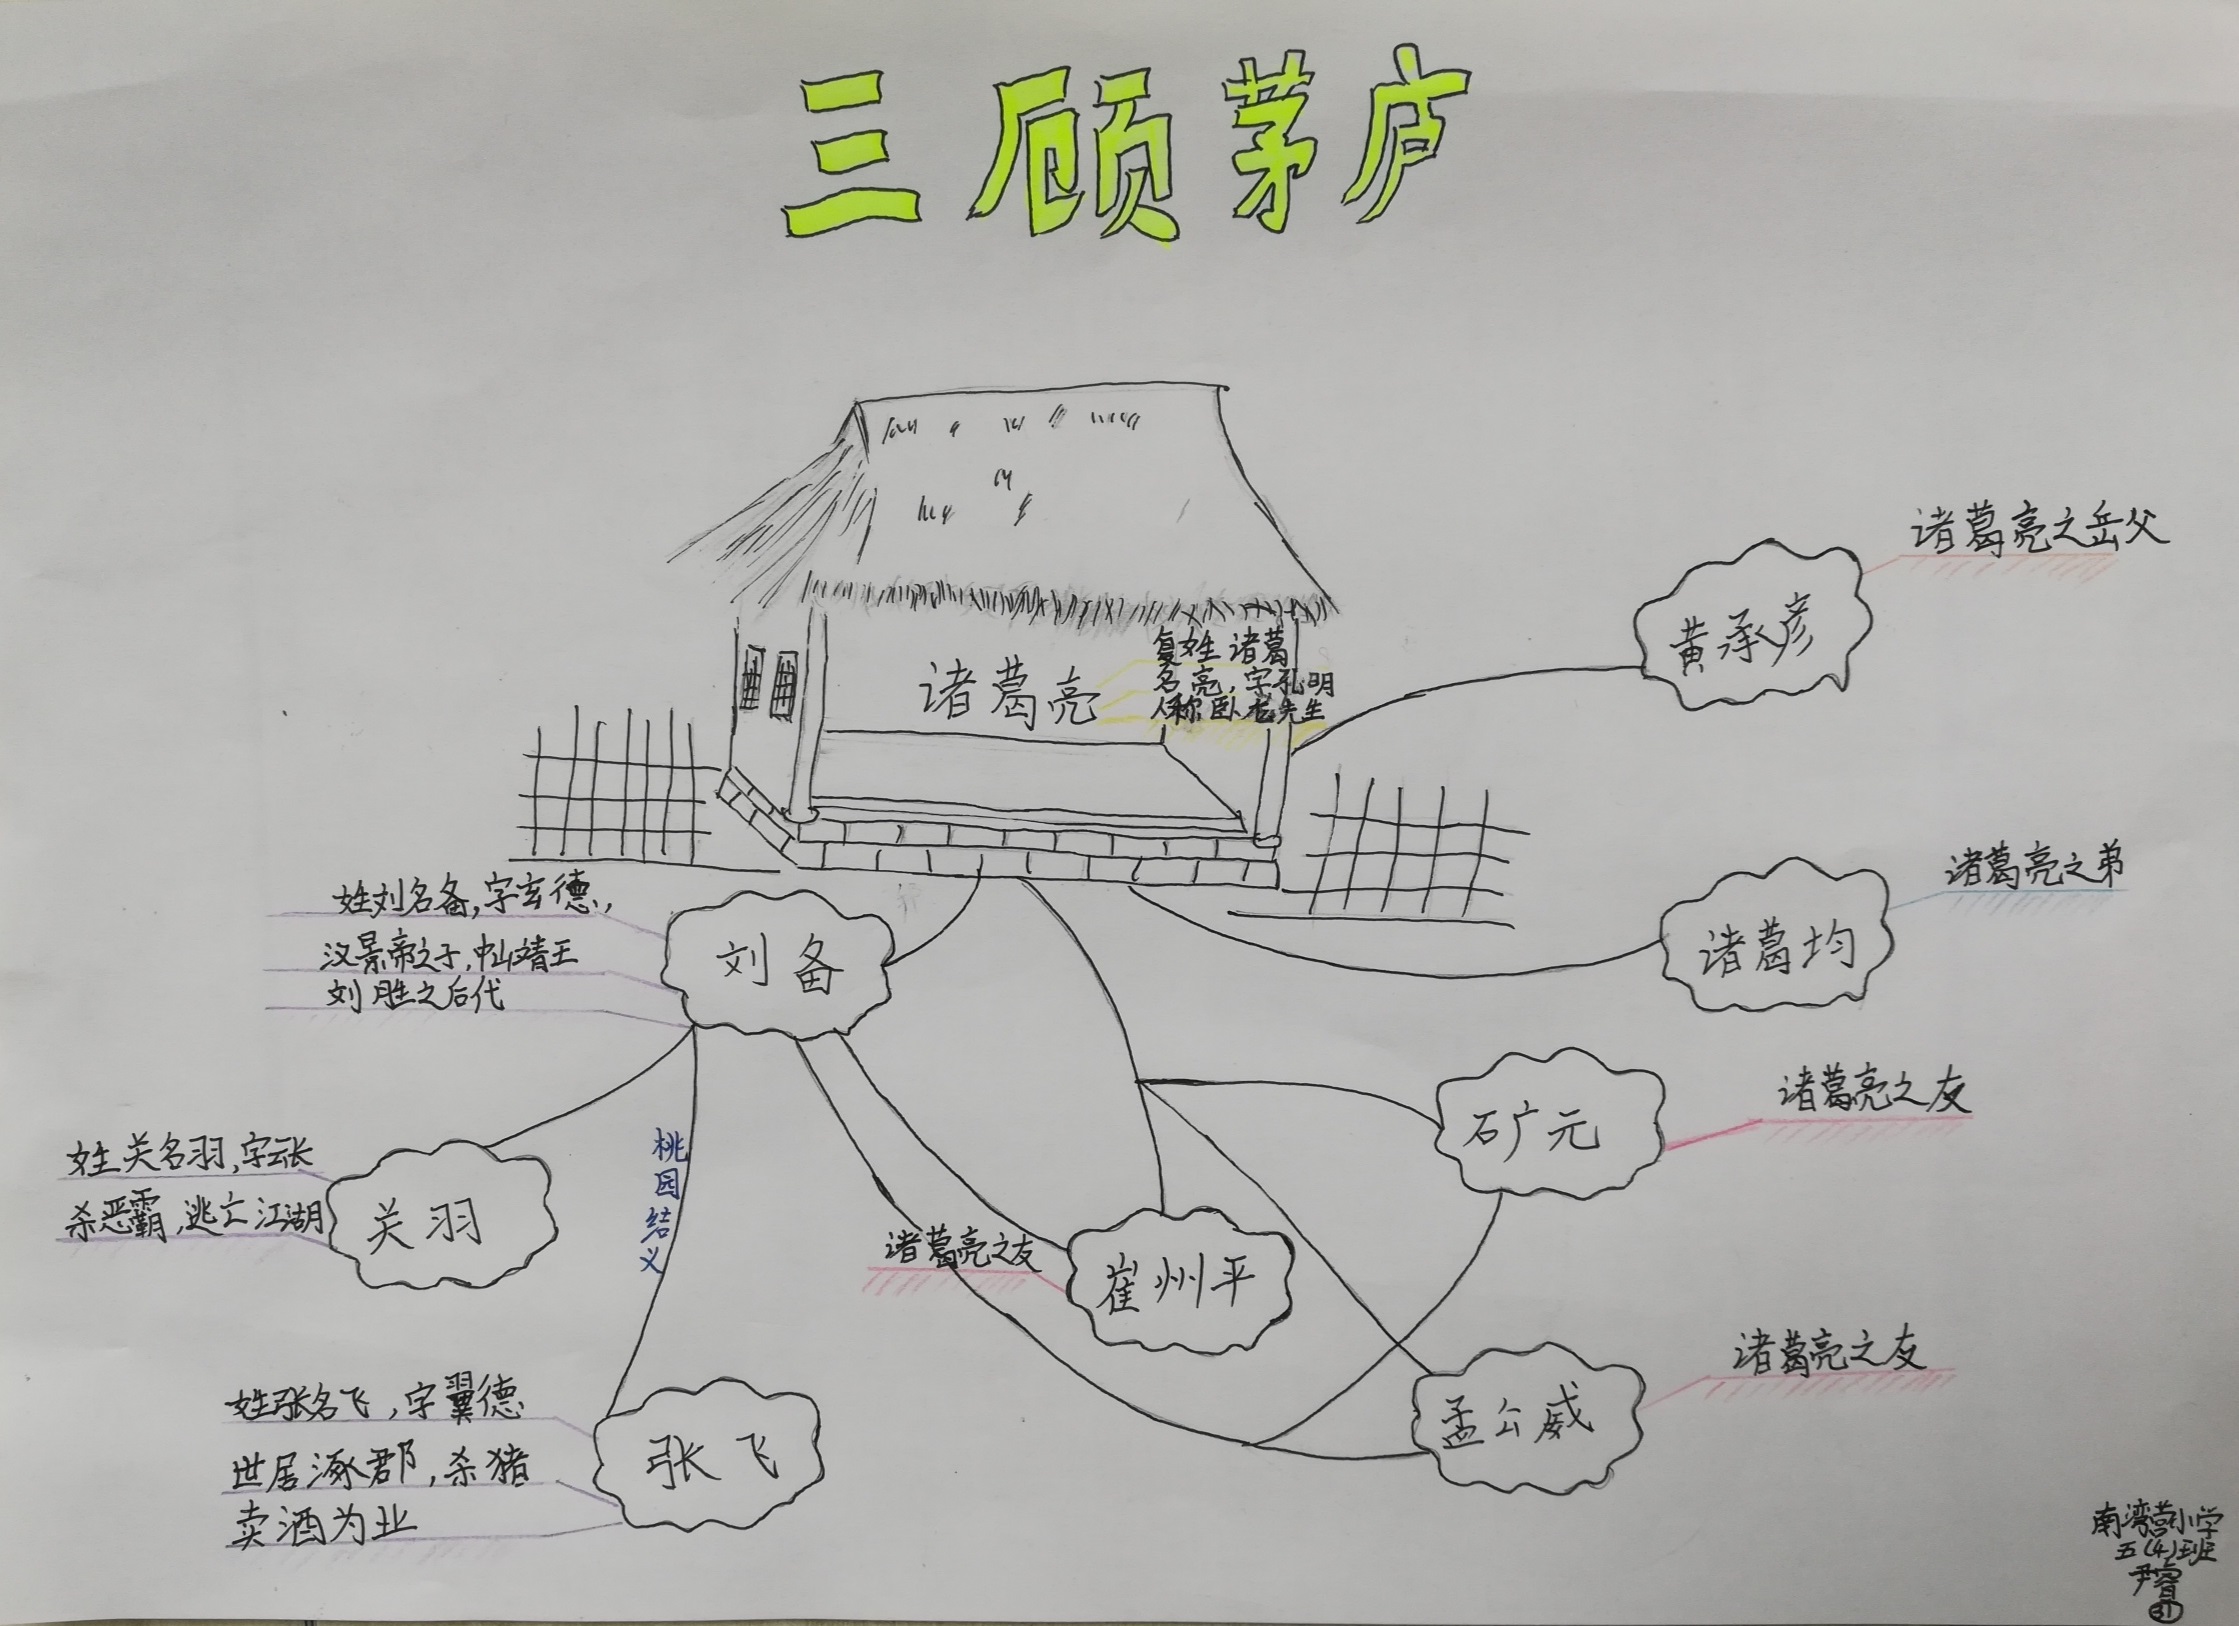 三顾茅庐
诸葛亮
复姓诸葛
名亮,字孔明
人称卧龙先生
黄承彦
诸葛亮之岳父
诸葛均
诸葛亮之弟
刘备
姓刘名备,字玄德,
汉景帝之子,中山靖王
刘胜之后代
石广元
诸葛亮之友
关羽
姓关名羽,字云长
杀恶霸,逃亡江湖
桃园结义
崔州平
诸葛亮之友
孟公威
诸葛亮之友
张飞
姓张名飞,字翼德
世居涿郡,杀猪
卖酒为业
南湾营小学
五(4)班
尹睿
31